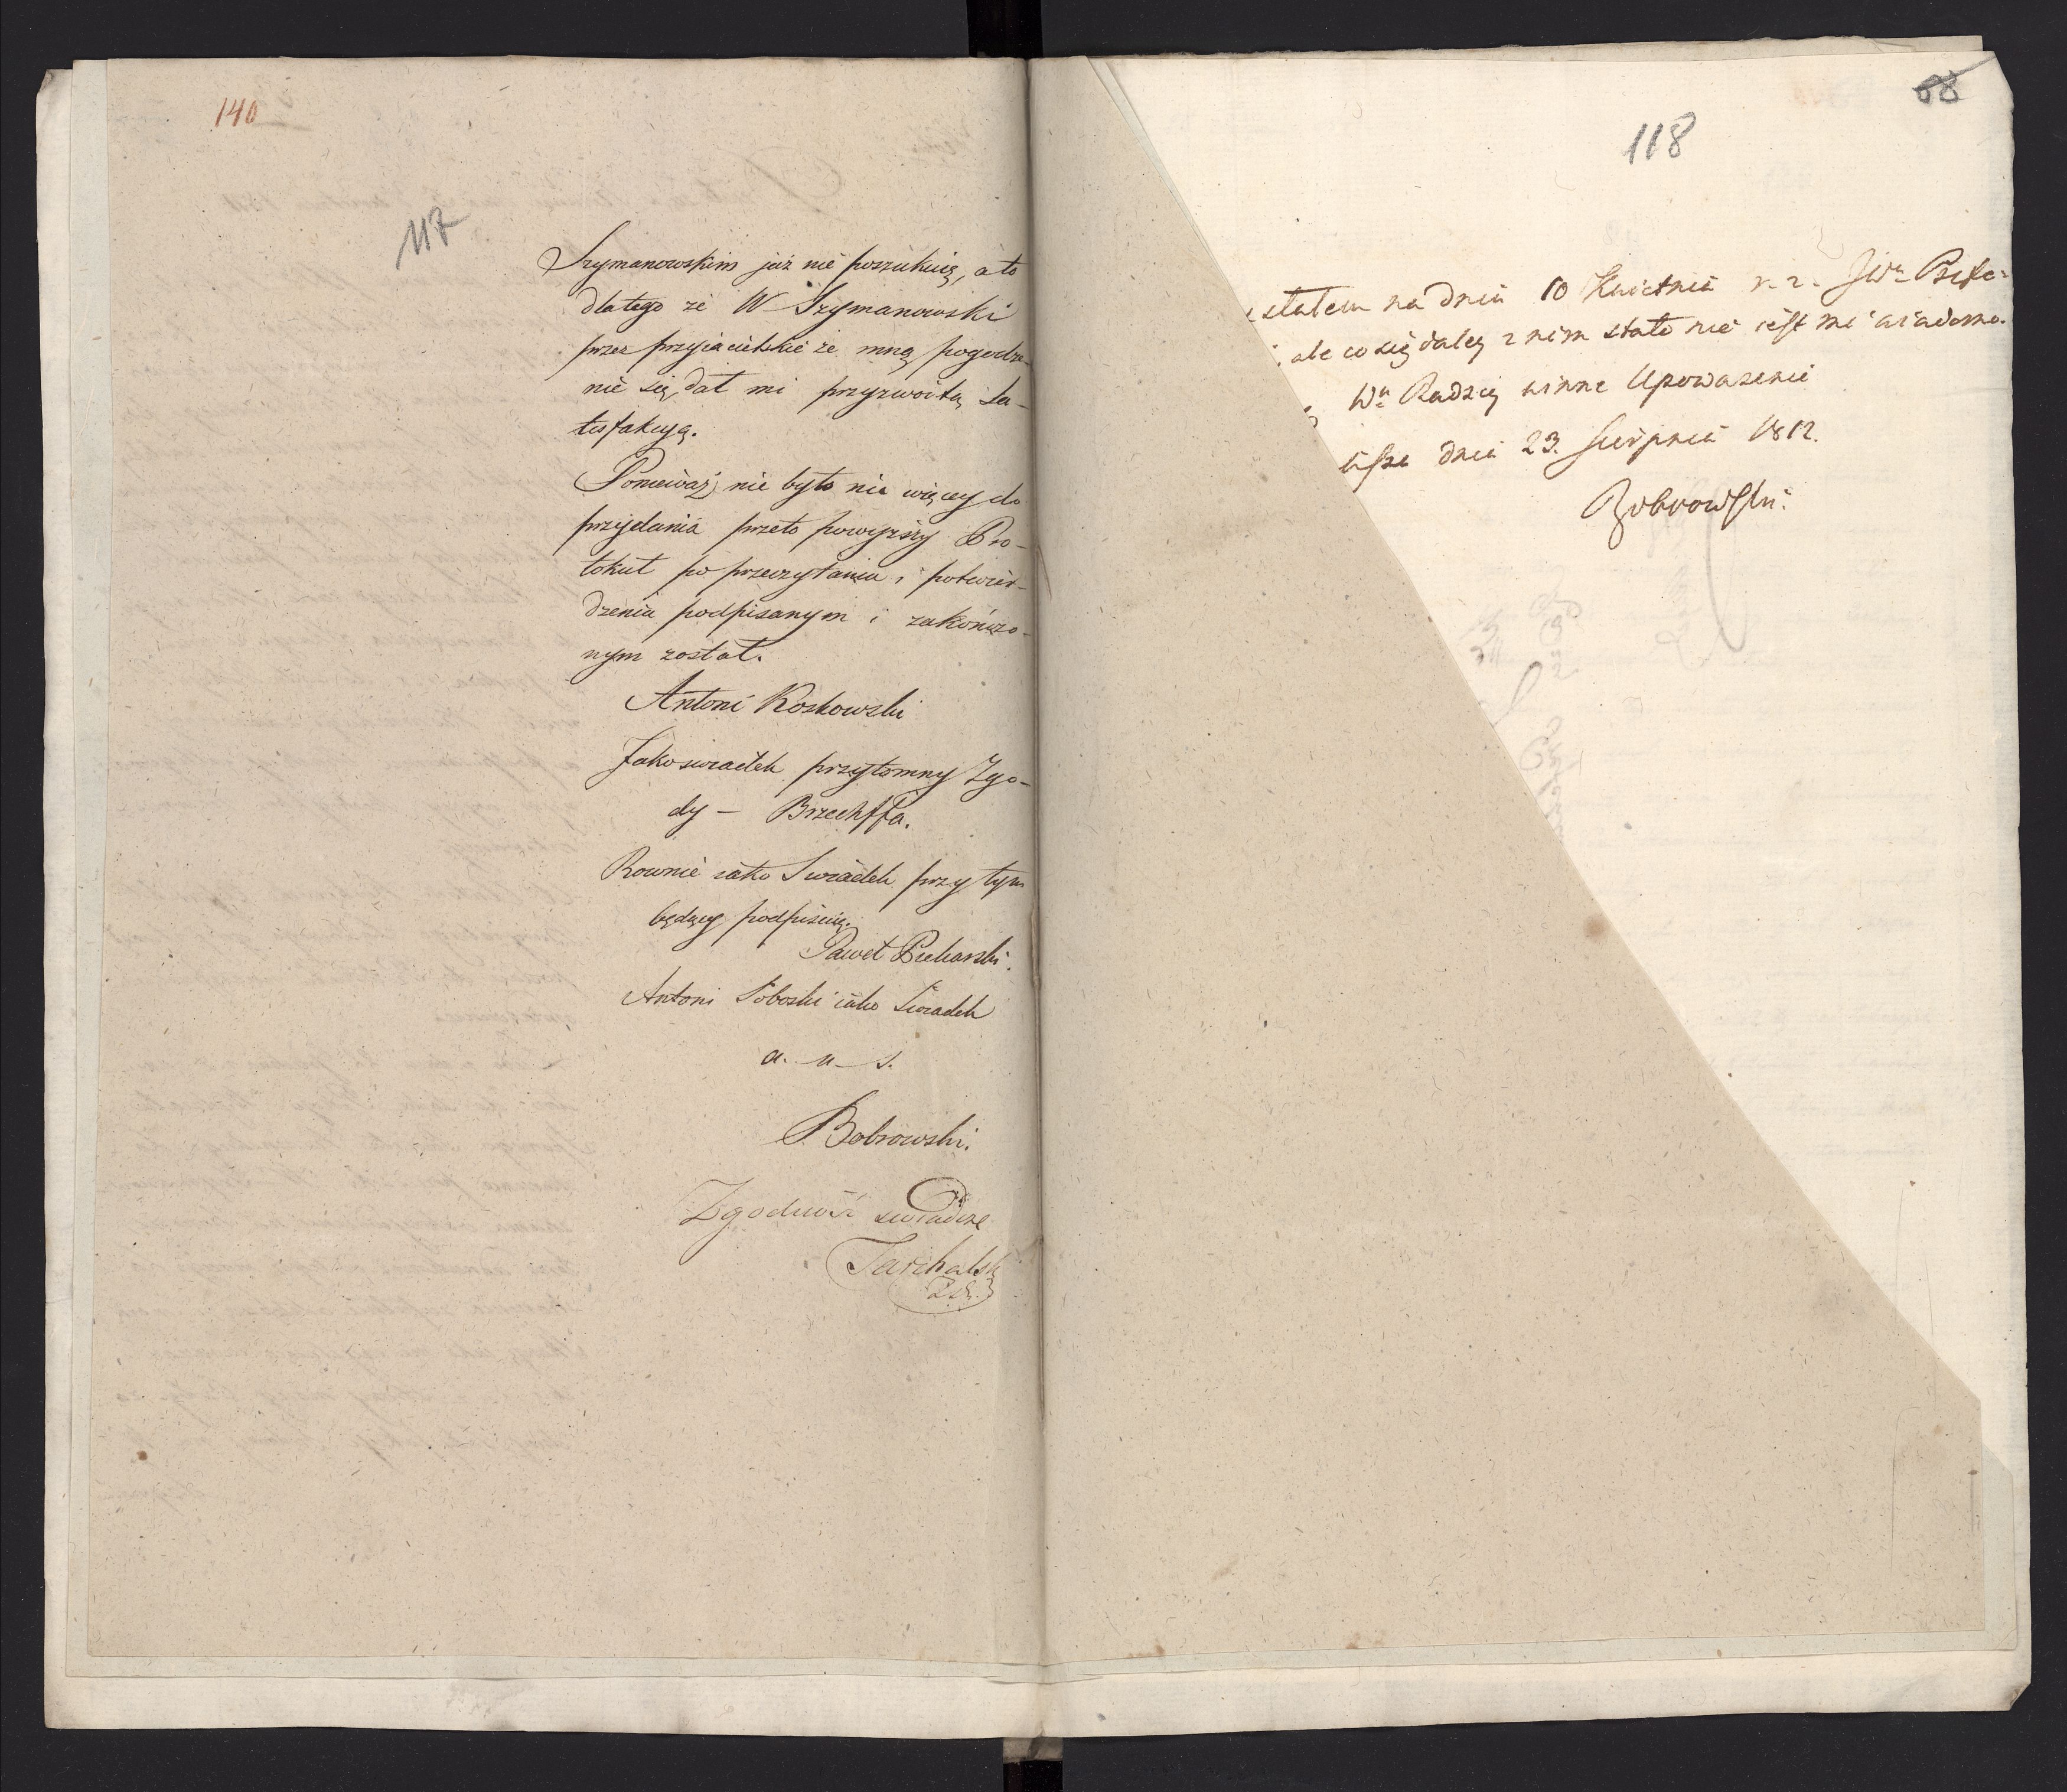 140
117
Szymanowskim już nie poszukuię, a to
dlatego że W Szymanowski
przez przyiacielskie ze mną pogodze-
nie się, dał mi przyzwoitą Sa-
tysfakcyą.
Ponieważ nie było nic więcey do
przydania przeto powyższy Pro-
tokuł po przeczytaniu i potwier-
dzeniu podpisanym i zakończo-
nym został.
Antoni Koskowski
Jako swiadek przytomny Zgo-
dy — Brzechffa.
Rownie iako Swiadek przy tym
będący podpisuię.
Paweł Piekarski.
Antoni Soboski iako Swiadek
a. u. s.
Bobrowski.
Zgodność swiadczę
Tarchalski
68
118
stałem na dniu 10 Kwietnia r. z. JWu Prefe=
ale co się daley z nim stało nie iest mi wiadomo.
Wu Radzcy winne Upoważenie
dnia 23. Sierpnia 1812.
Bobrowski.